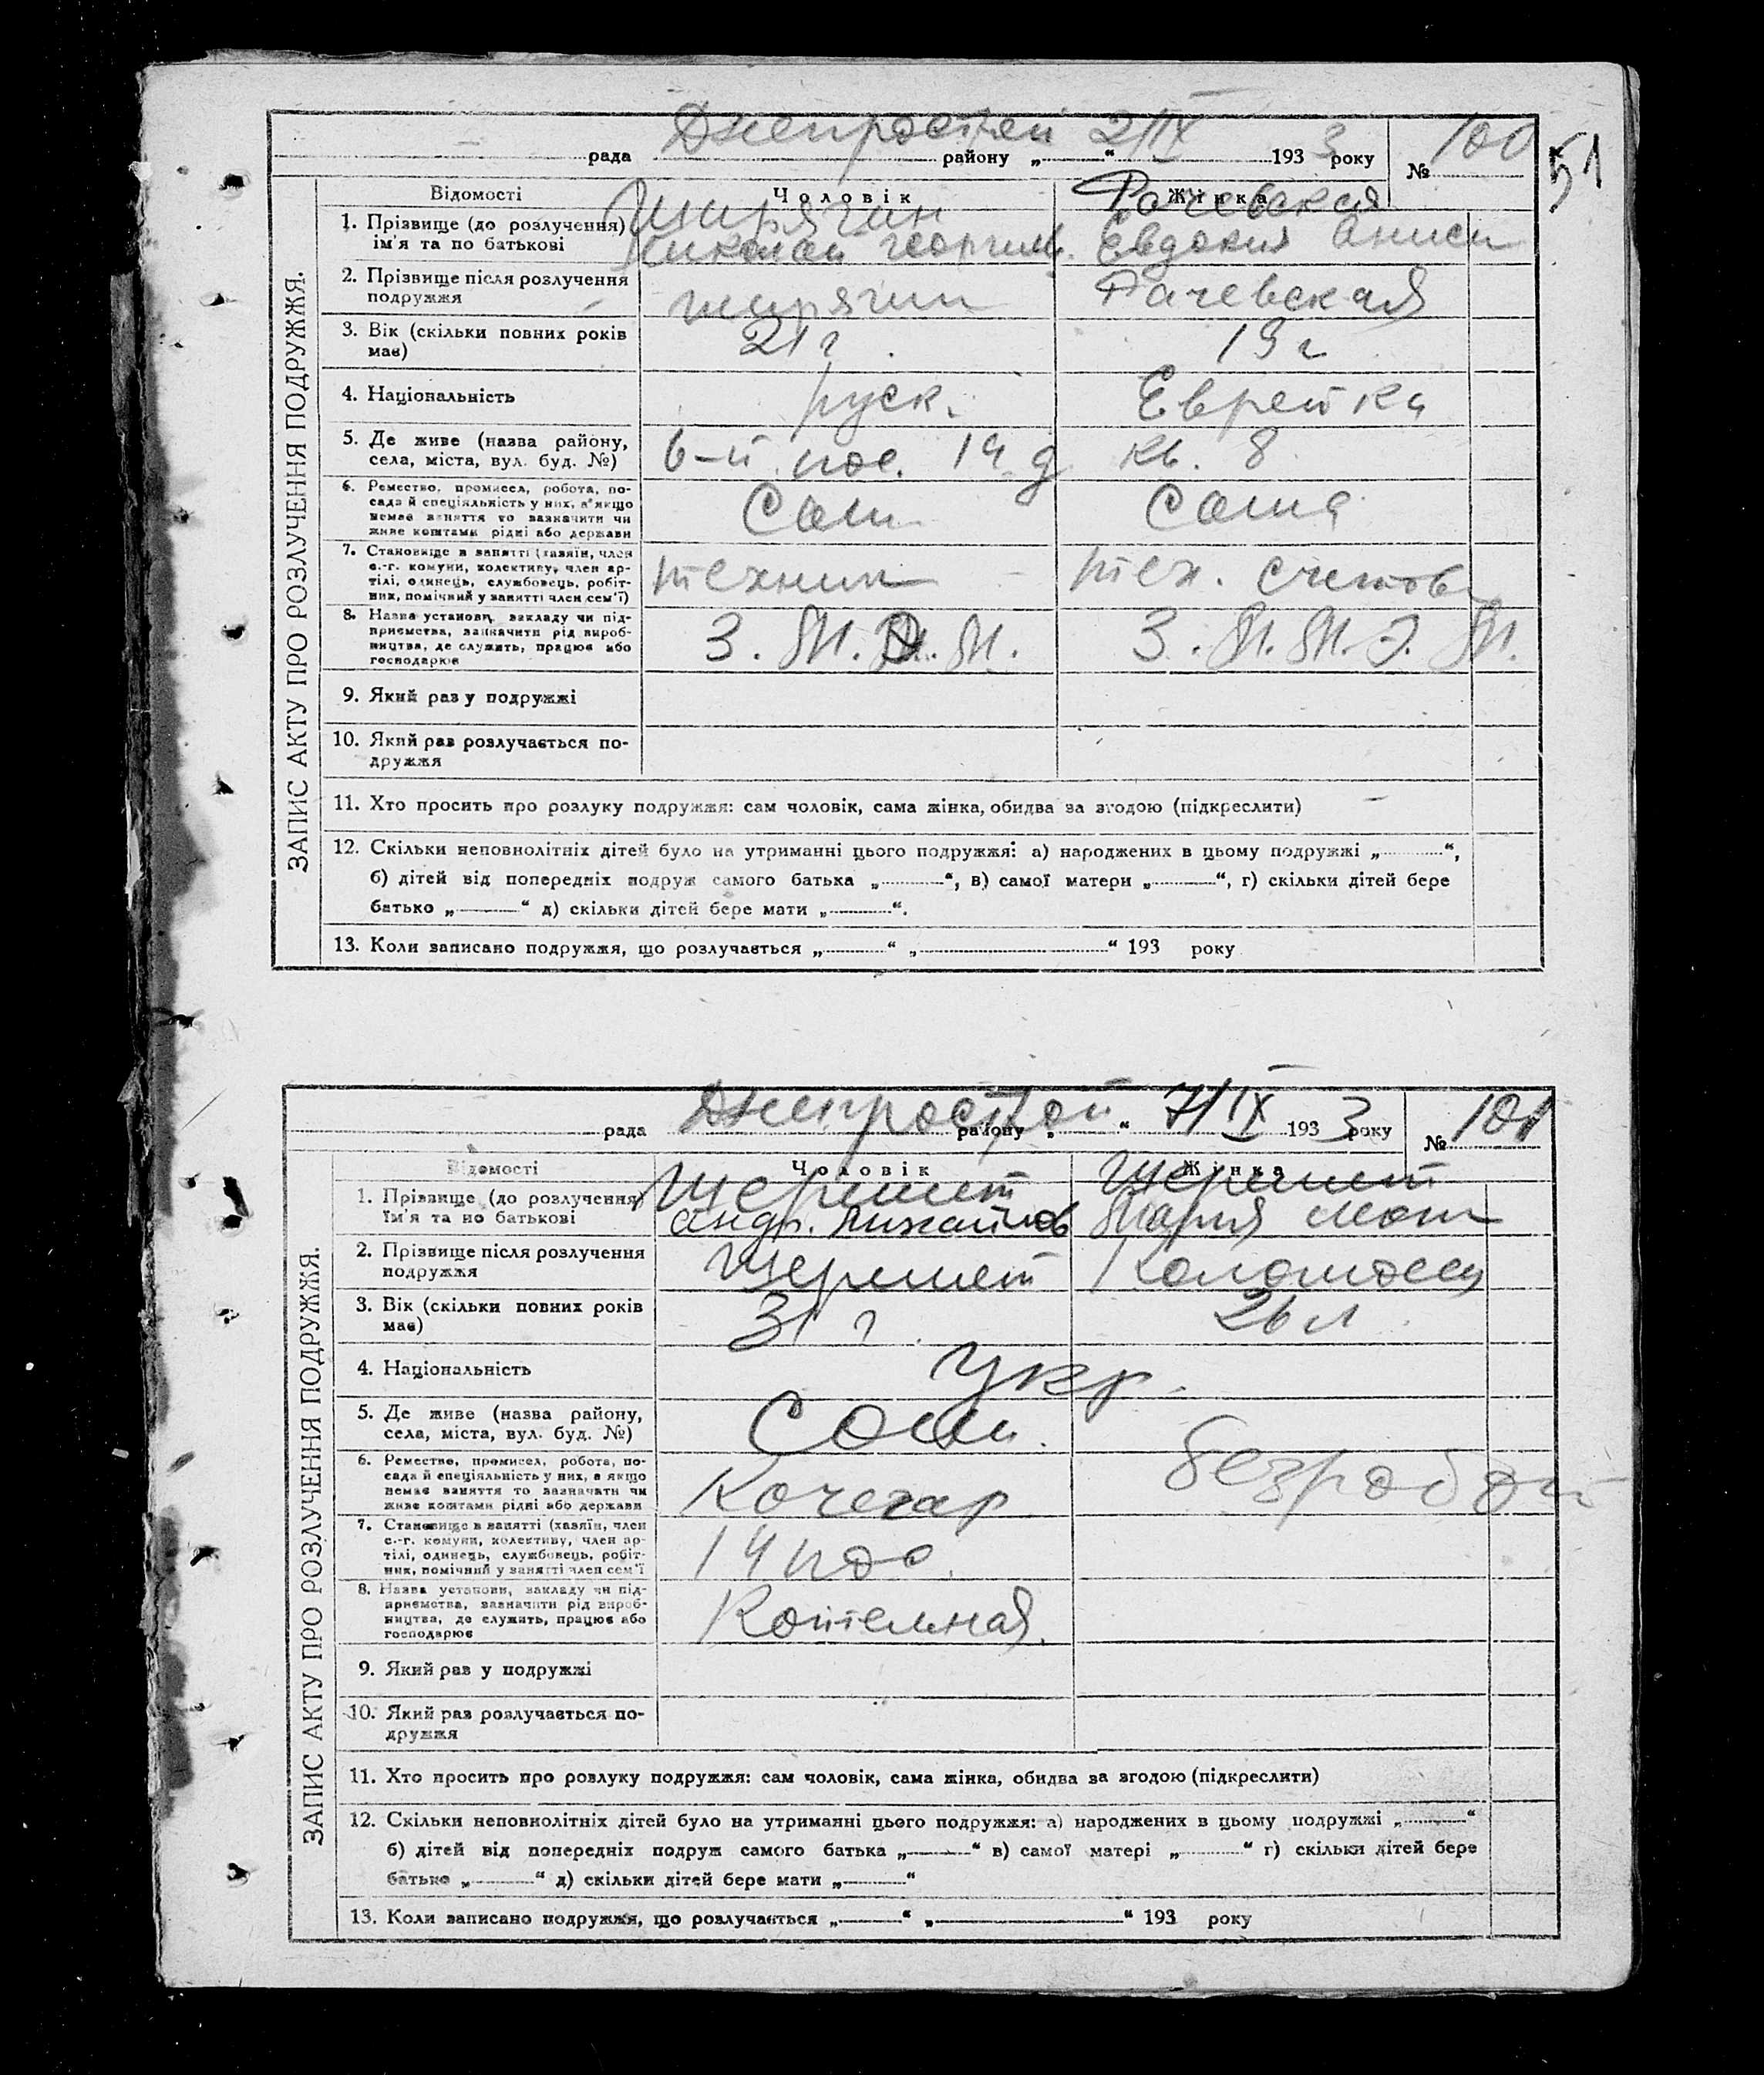 Днепрострой 2/IX
рада району „ “ 1933 року № 100
51
ЗАПИС АКТУ ПРО РОЗЛУЧЕННЯ ПОДРУЖЖЯ.
Відомості Чоловік Жінка
Ширягин Рачевская
1. Прізвище (до розлучення)
ім'я та по батькові Николай Георгиев. Евдокия Аниси
2. Прізвище після розлучення
подружжя Ширягин Рачевская
3. Вік (скільки повних років
має) 21 г 19 г
4. Національність руск. Еврейка
5. Де живе (назва району,
села, міста, вул. буд. №) 6-й пос. 19 д кв. 8
6. Ремество, промисел, робота, по-
сада й спеціяльність у них, а якщо
немає заняття то зазначити чи
живе коштами рідні або держави
7. Становище в занятті (хазяїн, член
с.-г. комуни, колективу, член ар-
тілі, одинець, службовець, робіт-
ник, помічний у занятті член сем'ї) техник тех. счетов
8. Назва установи, закладу чи під-
приємства, зазначити рід вироб-
ництва, де служить, працює або
господарює
9. Який раз у подружжі
10. Який раз розлучається по-
дружжя
11. Хто просить про розлуку подружжя: сам чоловік, сама жінка, обидва за згодою (підкреслити)
12. Скільки неповнолітніх дітей було на утриманні цього подружжя: а) народжених в цьому подружжі „ “,
б) дітей від попередніх подруж самого батька „ “, в) самої матери „ “, г) скільки дітей бере
батько „ “ д) скільки дітей бере мати „ “.
13. Коли записано подружжя, що розлучається „ “ „ “ 193 року
Днепрострой 7/IX
рада району „ “ 1933 року № 101
ЗАПИС АКТУ ПРО РОЗЛУЧЕННЯ ПОДРУЖЖЯ.
Відомості Чоловік Жінка
Шеремет Шеремет
1. Прізвище (до розлучення)
ім'я та по батькові Андр. Михайлов Мария
2. Прізвище після розлучення
подружжя Шеремет
3. Вік (скільки повних років
має) 31 г 26 л
4. Національність Укр.
5. Де живе (назва району,
села, міста, вул. буд. №)
6. Ремество, промисел, робота, по-
сада й спеціяльність у них, а якщо
немає заняття то зазначати чи
живе коштами рідні або держави Кочегар безработ
7. Становище в занятті (хазяїн, член
с.-г. комуни, колективу, член ар-
тілі, одинець, службовець, робіт-
ник, помічний у занятті член сем'ї 14 пос.
8. Назва установи, закладу чи під-
приємства, зазначити рід вироб-
ництва, де служить, працює або
господарює Котельная.
9. Який раз у подружжі
10. Який раз розлучається по-
дружжя
11. Хто просить про розлуку подружжя: сам чоловік, сама жінка, обидва за згодою (підкреслити)
12. Скільки неповнолітніх дітей було на утриманні цього подружжя: а) народжених в цьому подружжі „ “
б) дітей від попередніх подруж самого батька „ “ в) самої матері „ “ г) скільки дітей бере
батько „ “ д) скільки дітей бере мати „ “
13. Коли записано подружжя, що розлучається „ “ „ “ 193 року